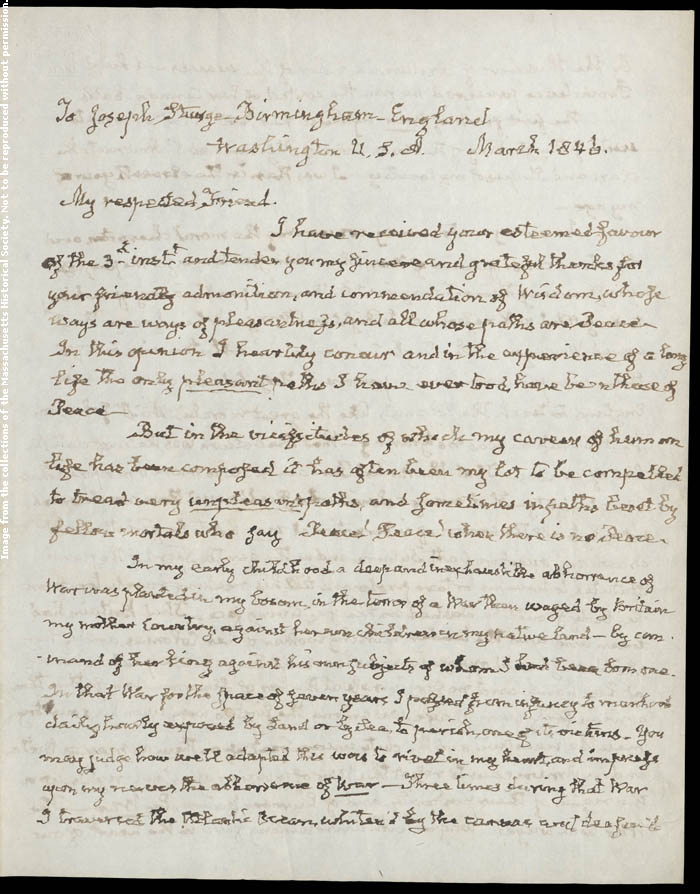 To Joseph Sturge – Birmingham – England
Washington U. S. A. March 1846.
My respected Friend.
I have received your esteemed favour
of the 3.d inst.t and tender you my sincere and grateful thanks for
your friendly admonition, and commendation of Wisdom, whose
ways are ways of pleasantness, and all whose paths are Peace –
In this opinion I heartily concur and in the experience of a long
life the only pleasant paths I have ever trod, have been those of
Peace –
But in the vicissitudes of which my career of human
life has been composed it has often been my lot to be compelled
to tread very unpleasant paths, and sometimes in paths beset by
fellow mortals who say Peace! Peace! when there is no Peace.
In my early childhood a deep and inexhaustible abhorrence of
War was planted in my bosom, in the terror of a War then waged by Britain
my mother Country, against her own children in my native land – by com
-mand of her King against his own subjects of whom I had been born one.
In that War for the space of seven years I passed from infancy to manhood
daily hourly exposed by Land or by Sea, to perish, one of its victims – You
may judge how well adapted this was to rivet in my heart, and impress
upon my nerves the abhorrence of War – Three times during that War
I traversed the Atlantic Ocean, whiten'd by the canvas and deafen'd
Image from the collections of the Massachusetts Historical Society. Not to be reproduced without permission.